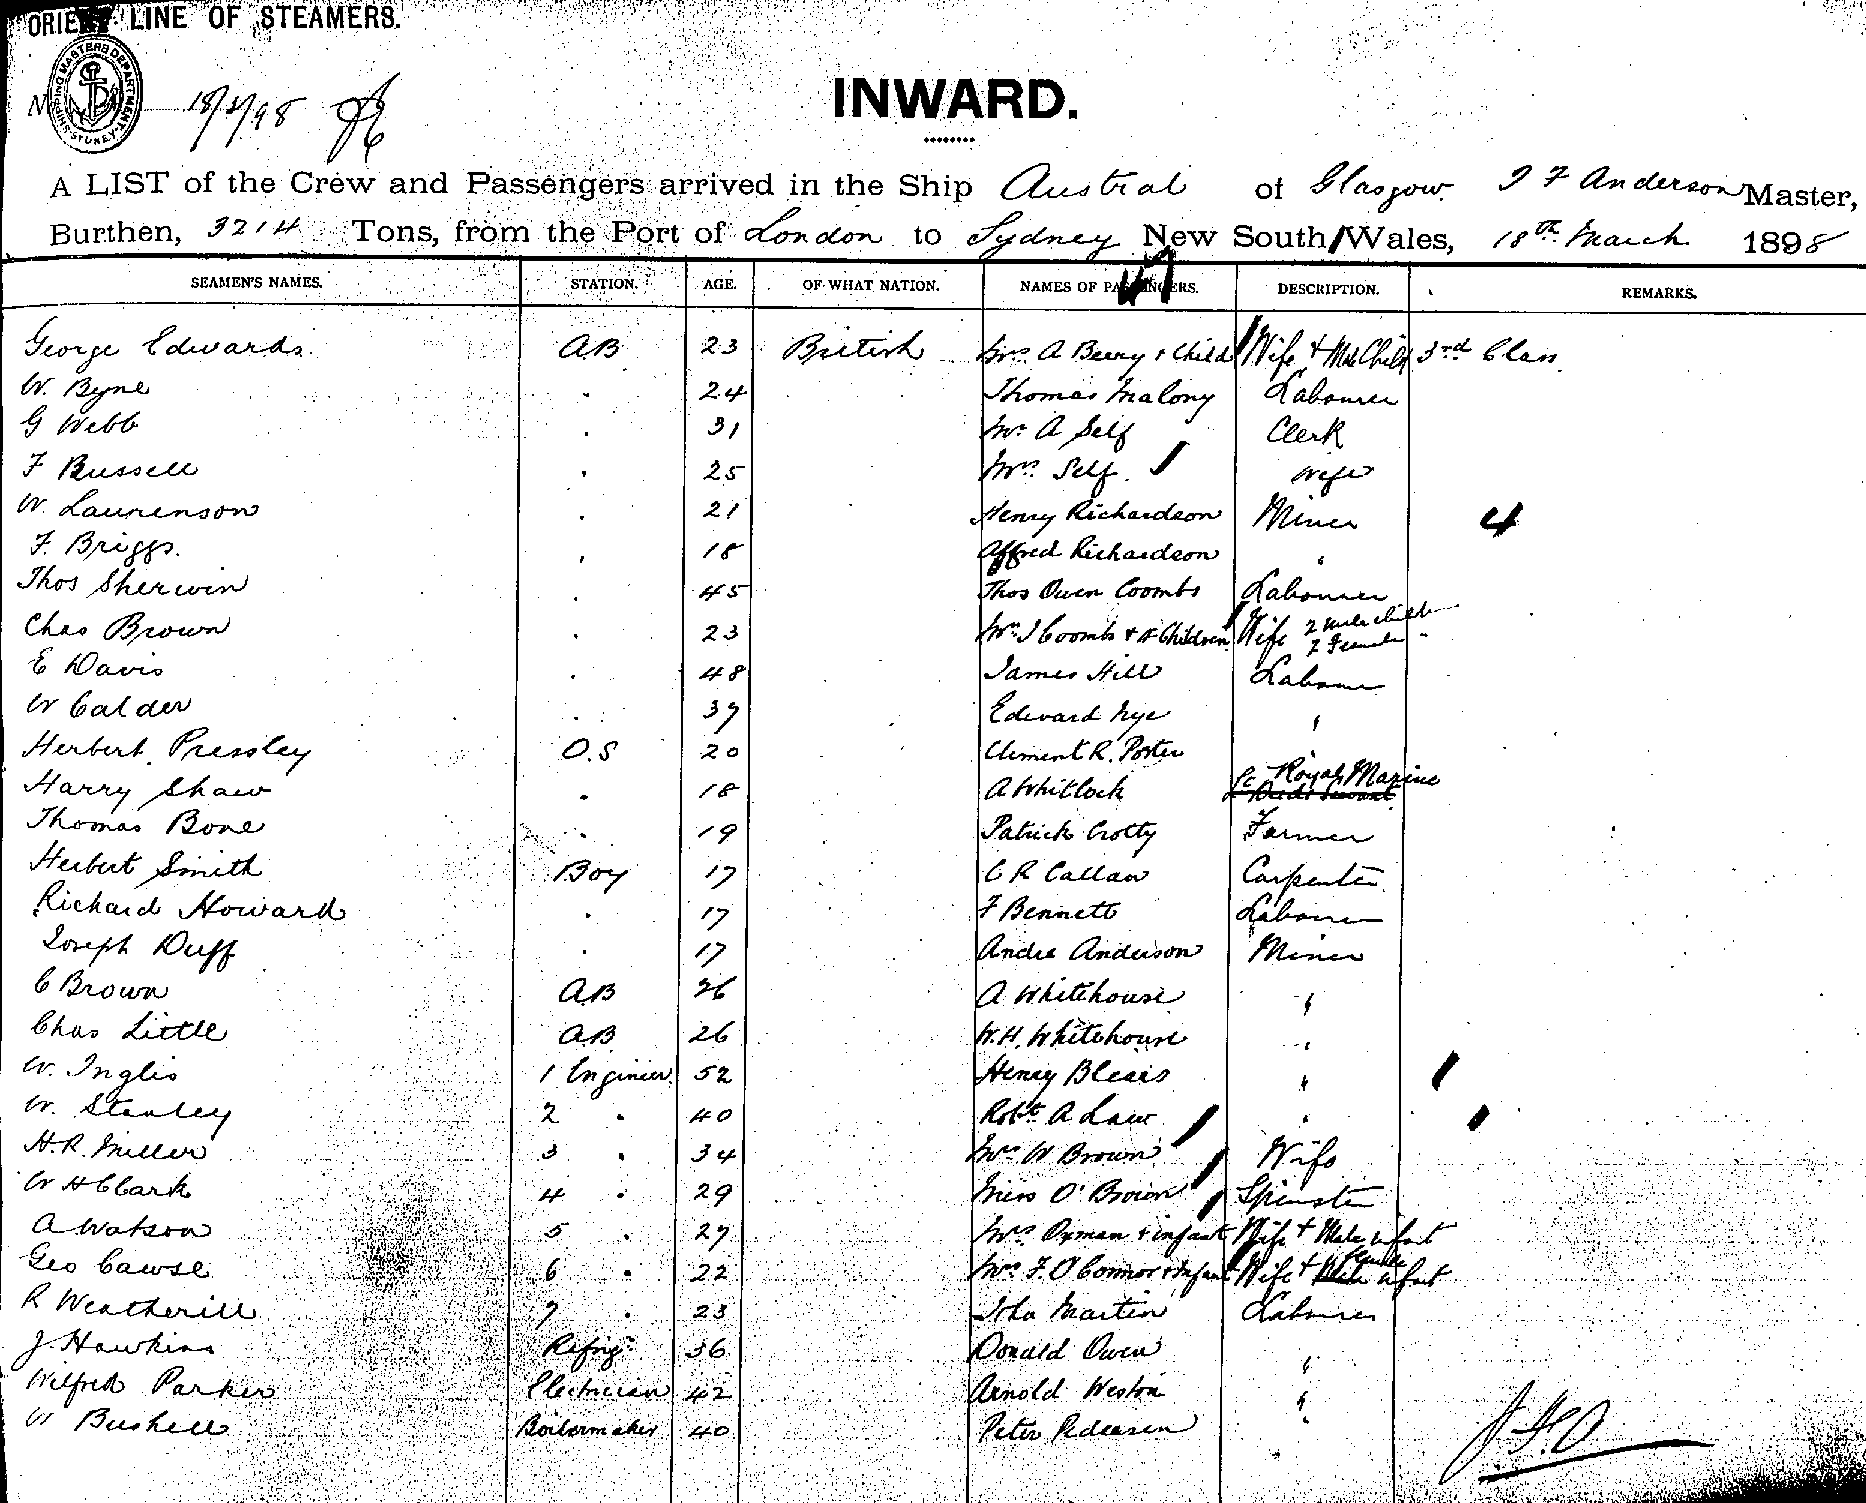 ORIENT LINE OF STEAMERS.
SHIPPING MASTERS DEPARTMENT SYDNEY
18/3/98
INWARD.
A LIST of the Crew and Passengers arrived in the Ship Austral of Glasgow. J F Anderson Master,
Burthen, 3214 Tons, from the Port of London to Sydney New South Wales, 18th March 1898
SEAMEN'S NAMES. STATION. AGE. OF WHAT NATION. NAMES OF PASSENGERS. DESCRIPTION. REMARKS.
George Edwards. AB 23 British Mrs A Berry + Child Wife + Male Child 3rd Class.
W. Byne " 24 Thomas Malony Labourer
G Webb " 31 Mr A Self Clerk
F Bussell " 25 Mrs Self. Wife
W. Laurenson " 21 Henry Richardson Miner 4
F. Briggs. " 18 Alfred Richardson "
Thos Sherwin " 45 Thos Owen Coombs Labourer
Chas Brown " 23 Mrs J Coombs + 4 Children Wife 2 male childn 2 Female "
E Davis " 48 James Hill Labourer
W Calder " 37 Edward Nye "
Herbert Pressley O.S 20 Clement R. Porter
Harry Shaw " 18 A Whitlock Royal Marine
Thomas Bone " 19 Patrick Crotty Farmer
Herbert Smith Boy 17 C R Callan Carpenter
Richard Howard " 17 F Bennett Labourer
Joseph Duff " 17 Andre Anderson Miner
C Brown AB 26 A Whitehouse "
Chas Little AB 26 W.H. Whitehouse "
W. Inglis 1 Engineer 52 Henry Blears "
W. Stanley 2 " 40 Robt A Law "
H.R. Miller 3 " 34 Mrs W Brown Wife
W H Clark 4 " 29 Miss O'Brown Spinster
A Watson 5 " 27 Mrs Oxman + infant Wife + Male infant
Geo Cawse 6 " 22 Mrs F. O'Connor + Infant Wife + Female infant
R Weatherill 7 " 23 John Martin Labourer
J. Hawkins Refrigr 36 Donald Owen "
Wilfred Parker Electrician 42 Arnold Weston "
W Bushell Boilermaker 40 Peter Pedersen "